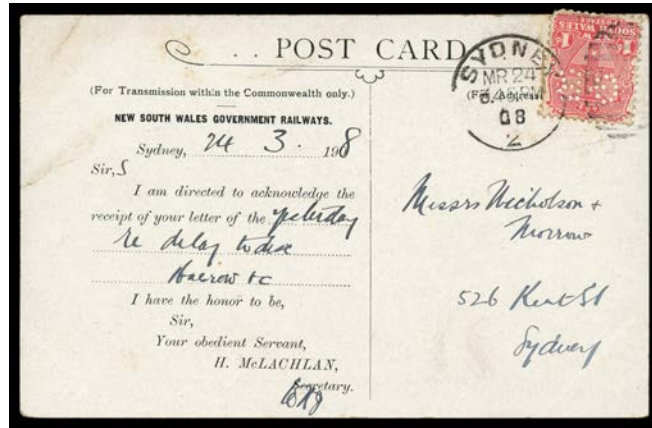 POST CARD
(For Transmission within the Commonwealth only.)
NEW SOUTH WALES GOVERNMENT RAILWAYS.
Sydney, 24 3. 1908
Sir,S
I am directed to acknowledge the
receipt of your letter of the yesterday
re delay to disc
Harrow &c
I have the honor to be,
Sir,
Your obedient Servant,
H. McLACHLAN,
Secretary.
SYDNEY
MR 24
PM
08
2
(For Address
SOUTH WALES
POSTAGE
1D
Messrs Nicholson +
Morrow
526 Kent St
Sydney